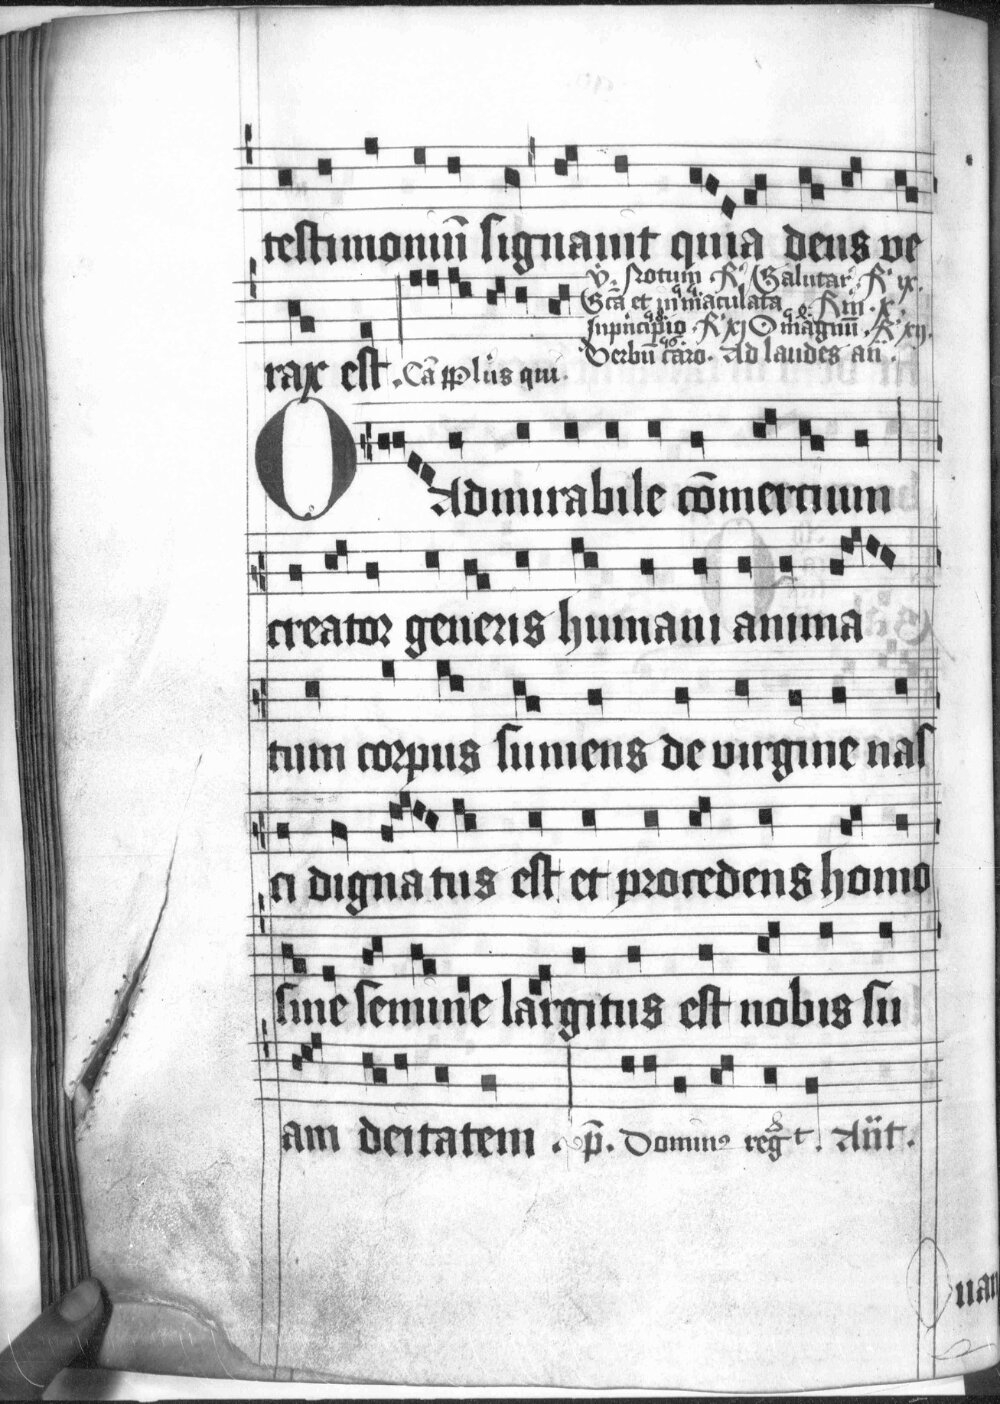 testimoniũ signauit quia deus ve
V̾. Notum. R̾. Salutar̾. R̾ ix.
Sc̃a et inmaculata. R̃m. x.
In principio. R̾ xj O magnũ. R̾ xij.
rax est. Cã pplus qui.
Verbũ caro. Ad laudes añ.
O Admirabile cõmercium
creator generis humani anima
tum corpus sumens de virgine nas
ci dignatus est et procedens homo
sine semine largitus est nobis su
am deitatem. p̃. Dominus regt. Añt.
Quan